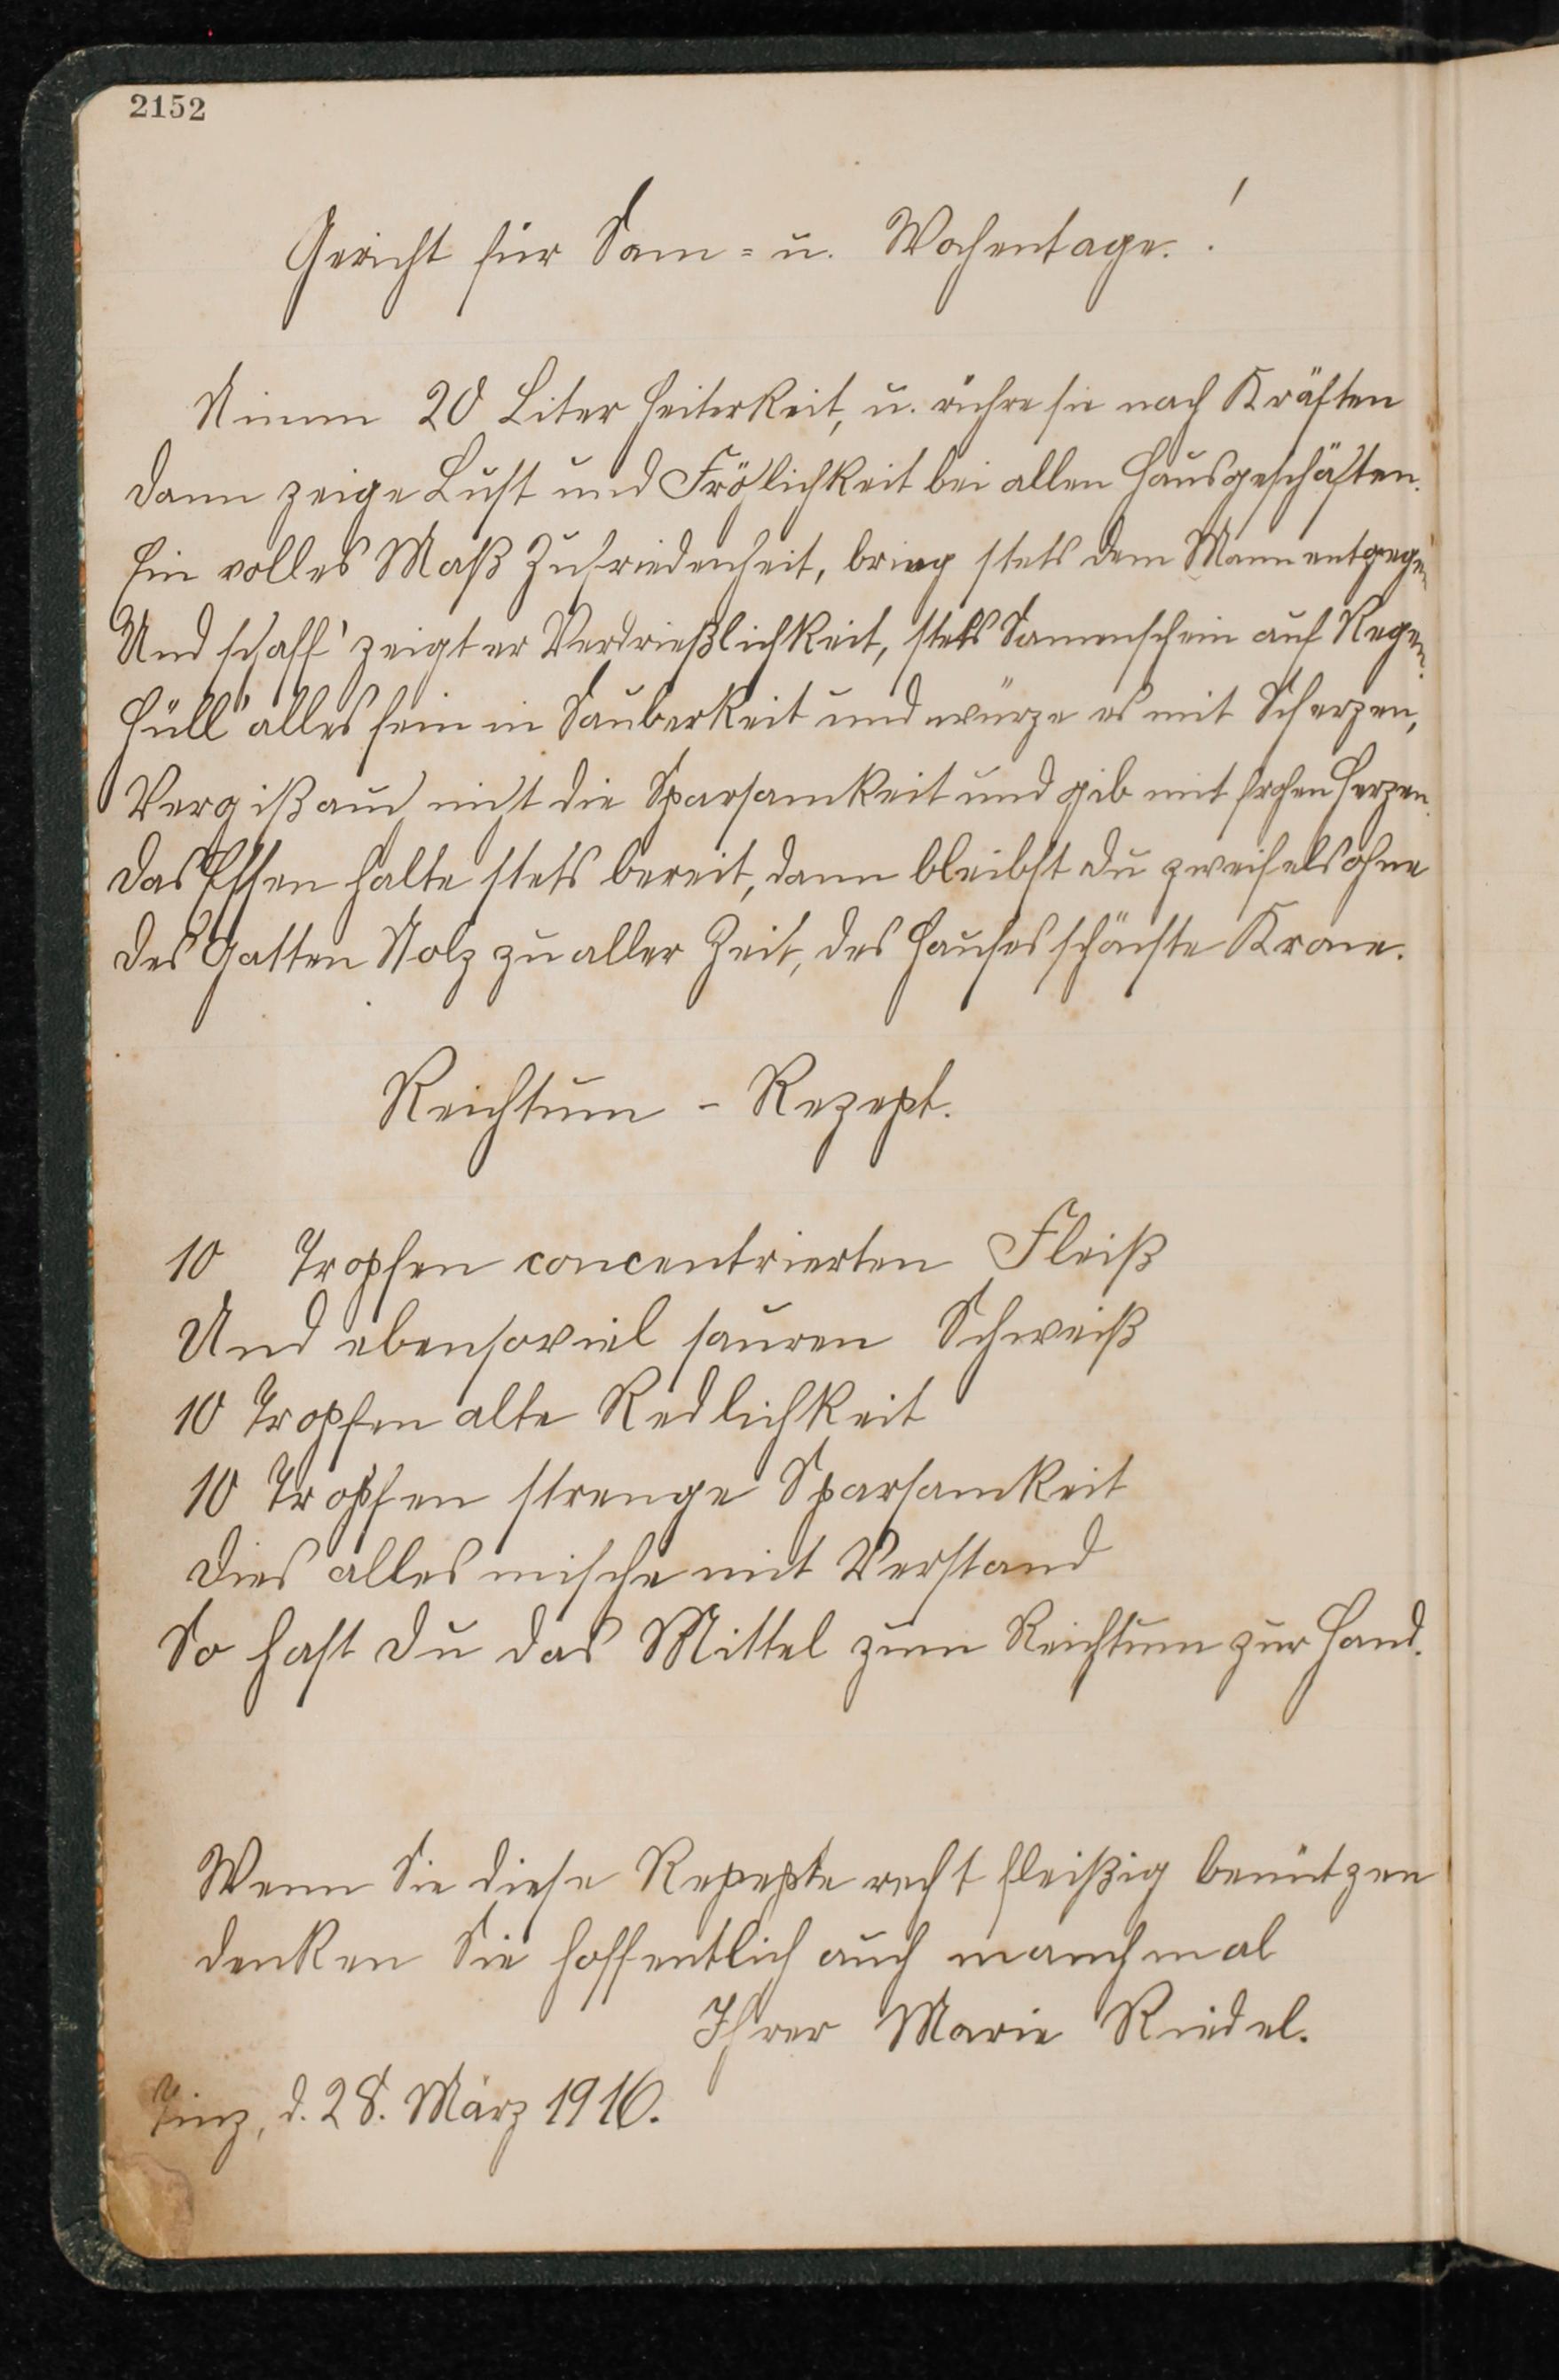 2152
Gericht für Sonn= u. Wochentage.!
Nimm 20 Liter Heiterkeit, u. rühre sie nach Kräften
dann zeige Lust und Fröhlichkeit bei allen Hausgeschäften.
Ein volles Maß Zufriedenheit, bring stets dem Mann entgegen
Und schaff' zeigt er Verdrießlichkeit, stets Sonnenschein auf Regen.
Hüll' alles fein in Sauberkeit und würze es mit Scherzen,
Vergiß auch nicht die Sparsamkeit und gib mit frohen Herzen.
Das Essen halte stets bereit, dann bleibst du zweifelsohne
des Gatten Stolz zu aller Zeit, des Hauses schönste Krone.
Reichtum - Rezept.
10 Tropfen concentrierten Fleiß
Und ebensoviel sauren Schweiß
10 Tropfen alte Redlichkeit
10 Tropfen strenge Sparsamkeit
Dies alles mische mit Verstand
So hast du das Mittel zum Reichtum zur Hand.
Wenn Sie diese Rezepte recht fleißig benützen
denken Sie hoffentlich auch manchmal
Ihrer Marie Riedel.
d. 28. März 1916.